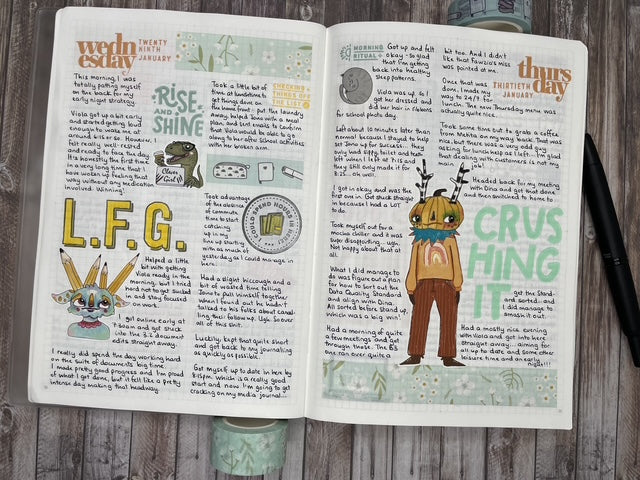 wedn
esday
TWENTY
NINTH
JANUARY
This morning, I was
totally patting myself
on the back for my
early night strategy.
Viola got up a bit early
and started getting loud
enough to wake me at
around 6:15 or so. However, I
felt really well-rested
and ready to face the day.
It's honestly the first time
in a very long time that I
have woken up feeling that
way without any medication
involved. Winning!
RISE
AND
SHINE
Clever
Girl
Took a little bit of
time at lunchtime to
get things done on
the home front - put the laundry
away, helped Jono with a meal
plan, and sent emails to confirm
that Viola would be able to get
to and do her after school activities
with her broken arm.
CHECKING
THINGS OFF
THE LIST
L.F.G.
Took advantage
of the absence
of commute
time to start
catching
up in my
line up starting
with as much of
yesterday as I could manage in
here.
I COULD SPEND HOURS IN HERE
Helped a little
bit with getting
Viola ready in the
morning, but I tried
hard not to get sucked
in and stay focused
on work.
I got online early at
7:30am and got stuck
into the 3.2 document
edits straight away.
I really did spend the day working hard
on the suite of documents big time.
I made pretty good progress and I'm proud
of what I got done, but it felt like a pretty
intense day making that headway.
Had a slight hiccough and a
bit of wasted time telling
Jono to pull himself together
when I found out he hadn't
talked to his folks about
follow up. Ugh. So over
all of this shit.
Luckily, kept that quite short
and got back to my journalling
as quickly as possible.
Got myself up to date in here by
8:15pm which is a really good
start and now I'm going to get
cracking on my media journal...
MORNING
RITUAL
Got up and felt
okay - so glad
that I'm getting
back into healthy
sleep patterns.
Viola was up, so I
got her dressed and
did her hair in ribbons
for school photo day.
Left about 10 minutes later than
normal because I stayed to help
get Jono up for success... they
only had sippy, toilet and teeth
left when I left at 7:15 and
they still only made it for
8:35... oh well.
I got in okay and was the
first one in. Got stuck straight
in because I had a LOT
to do.
Took myself out for a
mocha chiller and it was
super disappointing... ugh.
Not happy about that at
all.
What I did manage to
do was figure out a plan
for how to sort out the
Data Quality Standard
and align with Dina.
All sorted before stand up,
which was a big win!
Had a morning of quite
a few meetings and got
through those. The
one ran over quite a
bit too. And I didn't
like that Fawzia's miss
was pointed at me.
Once that was
done, I made my
way to 24/7 for
lunch. The new Thursday menu was
actually quite nice.
thurs
day
THIRTIETH
JANUARY
Took some time out to grab a coffee
from Mehta on my way back. That was
nice, but there was a very odd guy
asking for lunch help as I left... I'm glad
that dealing with customers is not my
job!
Headed back for my meeting
with Dina and got that done
and then switched to home to
CRUS
HING
IT
get the
and sorted... and
did manage to
smash it out.
Had a mostly nice evening
with Viola and got into here
straight away... aiming for
all up to date and some other
leisure time and an early
night!!!